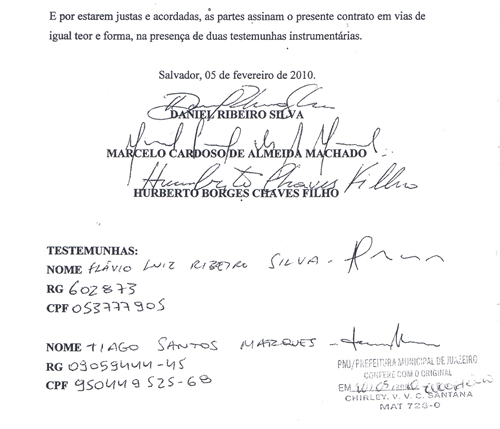 E por estarem justas e acordadas, as partes assinam o presente contrato em vias de
igual teor e forma, na presença de duas testemunhas instrumentárias.
Salvador, 05 de fevereiro de 2010.
DANIEL RIBEIRO SILVA
MARCELO CARDOSO DE ALMEIDA MACHADO
Humberto Chaves Filho
HURBERTO BORGES CHAVES FILHO
TESTEMUNHAS:
NOME FLÁVIO LUIZ RIBEIRO SILVA -
RG 602873
CPF 053777905
NOME TIAGO SANTOS MARQUES -
RG 09059444-45
CPF 950449525-68
PMJ/PREFEITURA MUNICIPAL DE JUAZEIRO
CONFERE COM O ORIGINAL
EM
CHIRLEY. V. V. C. SANTANA
MAT 728-0